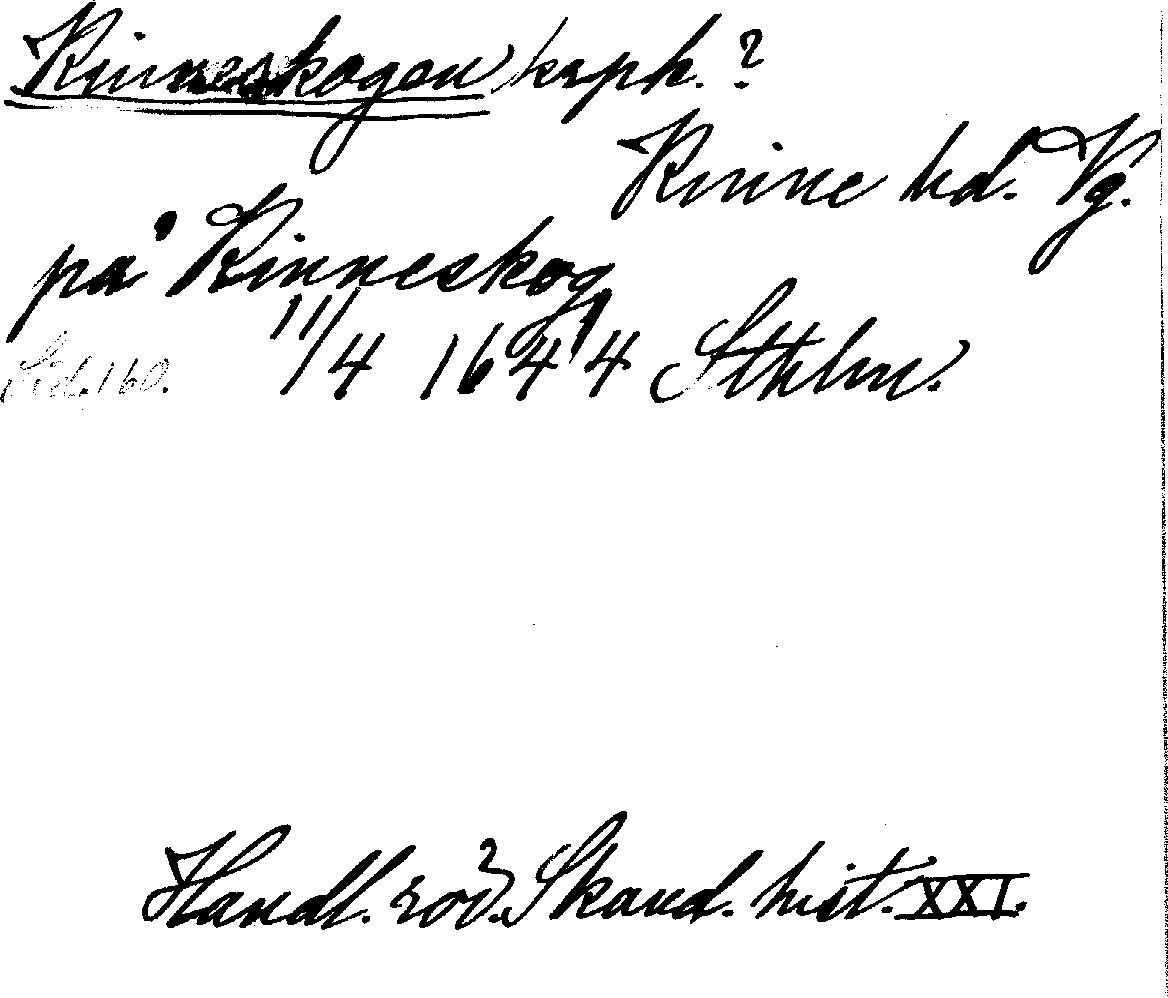 Kinneskogen krph.?
Kinne hd. Vg.
på Kinneskog
Sid. 160. 11/4 1644 Sthlm.
Handl. rör. Skand. hist. XXI.